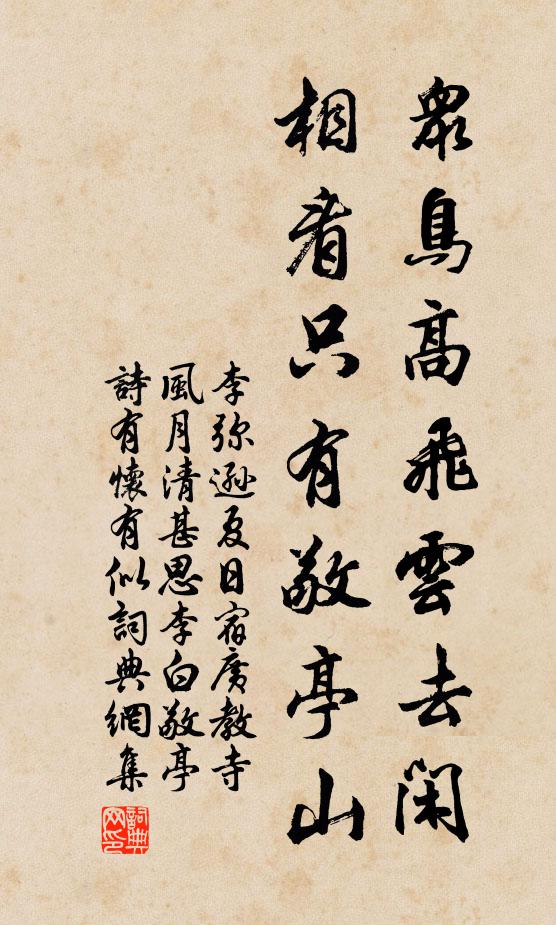 眾鳥高飛雲去閑
相看只有敬亭山
李弥遜夏日宿廣教寺
風月清甚思李白敬亭
詩有懷有似詞典網集
詞典
网印